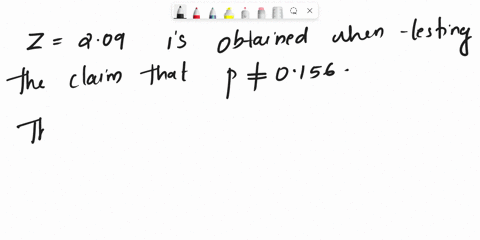 Z = 2.09 i's obtained when testing
The claim that p ≠ 0.156.
Th